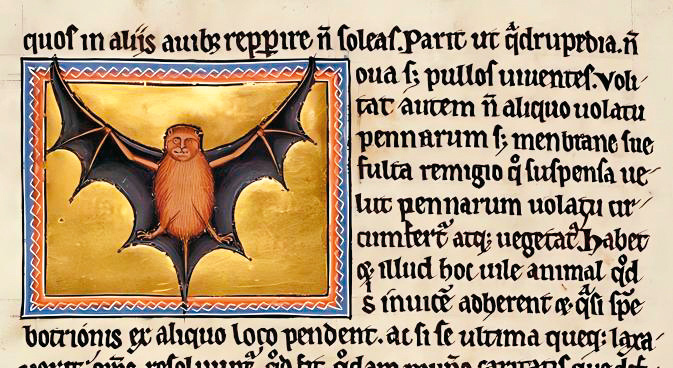 quos in aliis auibꝫ repꝑire n̄ soleas. Parit ut qͣdrupedia. n̄
oua sꝫ pullos uiuentes. Voli
tat autem n̄ aliquo uolatu
pennarum sꝫ menbrane sue
fulta remigio qͦ suspensa ue
lut pennarum uolatu cir
cumfert᷑ atqꝫ uegetat᷑. Habet
qꝫ illud hoc uile animal qd̄
s̄ inuicē adherent ⁊ qͣsi spē
botrionis ex aliquo loco pendent. ac si se ultima queqꝫ laxa